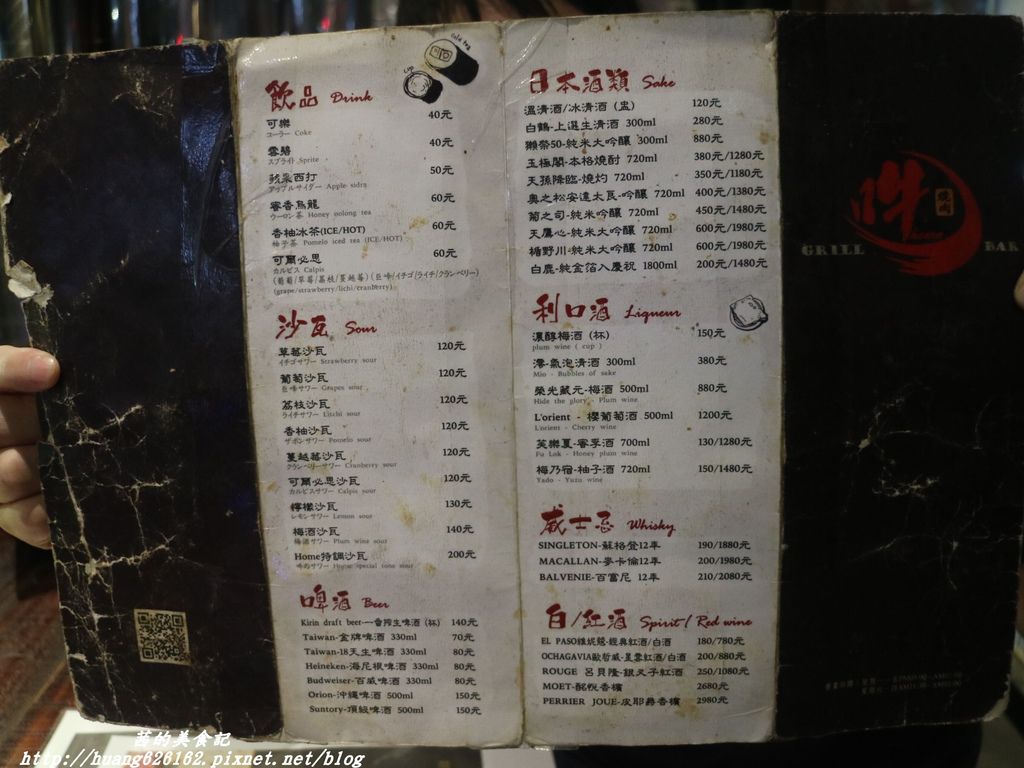 飲品 Drink
可樂 40元
コーラー Coke
雪碧 40元
スプライト Sprite
蘋果西打 50元
アップルサイダー Apple sidra
蜜香烏龍 60元
ウーロン茶 Honey oolong tea
香柚冰茶(ICE/HOT) 60元
柚子茶 Pomelo iced tea (ICE/HOT)
可爾必思 60元
カルピス Calpis
(葡萄/草莓/荔枝/蔓越莓)(巨峰/イチゴ/ライチ/クランベリー)
(grape/strawberry/lichi/cranberry)
沙瓦 Sour
草莓沙瓦 120元
イチゴサワー Strawberry sour
葡萄沙瓦 120元
巨峰サワー Grapes sour
荔枝沙瓦 120元
ライチサワー Litchi sour
香柚沙瓦 120元
ザボンサワー Pomelo sour
蔓越莓沙瓦 120元
クランベリーサワー Cranberry sour
可爾必思沙瓦 120元
カルピスサワー Calpis sour
檸檬沙瓦 130元
レモンサワー Lemon sour
梅酒沙瓦 140元
梅酒サワー Plum wine sour
Home特調沙瓦 200元
サワー House special tone sour
啤酒 Beer
Kirin draft beer-一番搾生啤酒 (杯) 140元
Taiwan-金牌啤酒 330ml 70元
Taiwan-18天生啤酒 330ml 80元
Heineken-海尼根啤酒 330ml 80元
Budweiser-百威啤酒 330ml 80元
Orion-沖繩啤酒 500ml 150元
Suntory-頂級啤酒 500ml 150元
日本酒類 Sake
溫清酒/冰清酒 (盅) 120元
白鶴-上選生清酒 300ml 280元
獺祭50-純米大吟釀 300ml 880元
玉極閣-本格燒酎 720ml 380元/1280元
天孫降臨-燒灼 720ml 350元/1180元
奧之松安達太良-吟釀 720ml 400元/1380元
菊之司-純米吟釀 720ml 450元/1480元
天鷹心-純米大吟釀 720ml 600元/1980元
楯野川-純米大吟釀 720ml 600元/1980元
白鹿-純金箔入慶祝 1800ml 200元/1480元
利口酒 Liqueur
濃醇梅酒 (杯) 150元
plum wine ( cup )
澪-氣泡清酒 300ml 380元
Mio - Bubbles of sake
榮光藏元-梅酒 500ml 880元
Hide the glory - Plum wine
L'orient - 櫻葡萄酒 500ml 1200元
L'orient - Cherry wine
芙樂夏-蜜李酒 700ml 130/1280元
Fu Lok - Honey plum wine
梅乃宿-柚子酒 720ml 150/1480元
Yado - Yuzu wine
威士忌 Whisky
SINGLETON-蘇格登12年 190/1880元
MACALLAN-麥卡倫12年 200/1980元
BALVENIE-百富尼 12年 210/2080元
白/紅酒 Spirit / Red wine
EL PASO維妮競-經典紅酒/白酒 180/780元
OCHAGAVIA歐哲威-星雲紅酒/白酒 200/880元
ROUGE 呂貝隆-銀天子紅酒 250/1080元
MOET-酩悅香檳 2680元
PERRIER JOUE-皮耶爵香檳 2980元
燒肉
GRILL BAR
cola tea
茜的美食記
http://huang626162.pixnet.net/blog